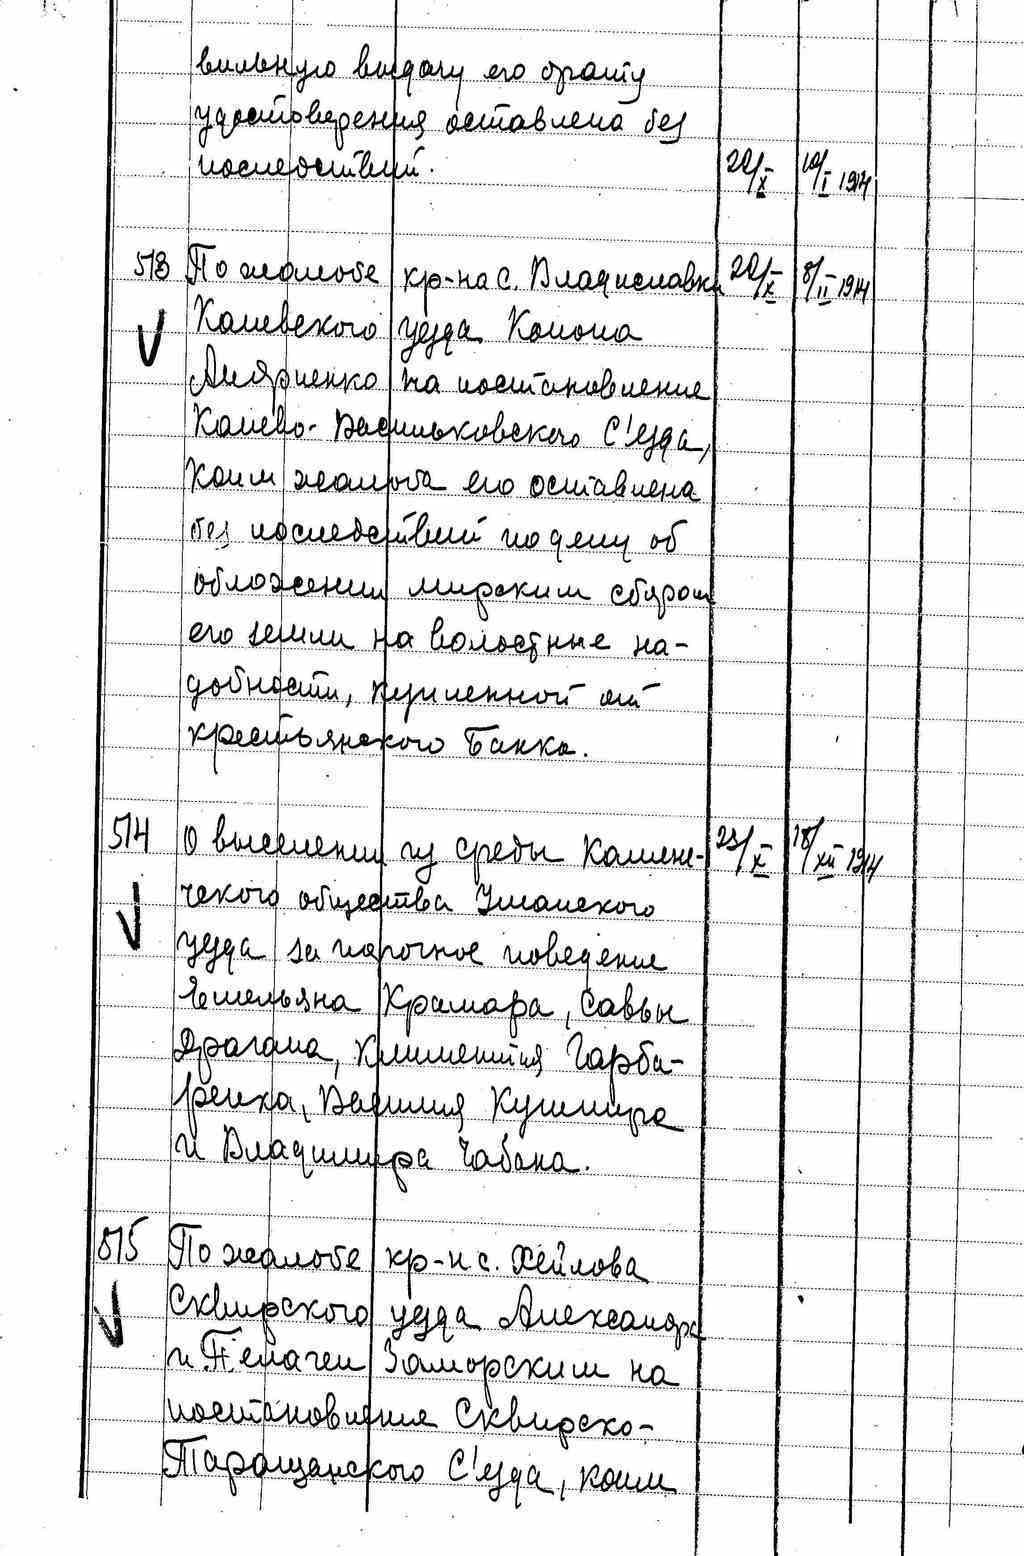 вильную выдачу его брату
удостоверения оставлена без
последствий. 20/X 10/I 1914
513 По жалобе кр-на с. Владиславки 20/X 8/II 1914
Каневского уезда Конона
на постановление
Канево-Васильковского С'езда,
коим жалоба его оставлена
без последствий по делу об
обложении мирским сбором
его земли на волостные на-
добности, купленной от
крестьянского Банка.
514 О выселении из среды Камене- 23/X 18/XII 1914
чекого общества Уманского
уезда за порочное поведение
Емельяна Крамара, Саввы
Драгана, Климентия Гарба-
ренка, Василия Кушнира
и Владимира Чабана.
515 По жалобе кр-н с. Хейлова
Сквирского уезда Александра
и Пелагеи Заморским на
постановления Сквирско-
Таращанского С'езда, коим